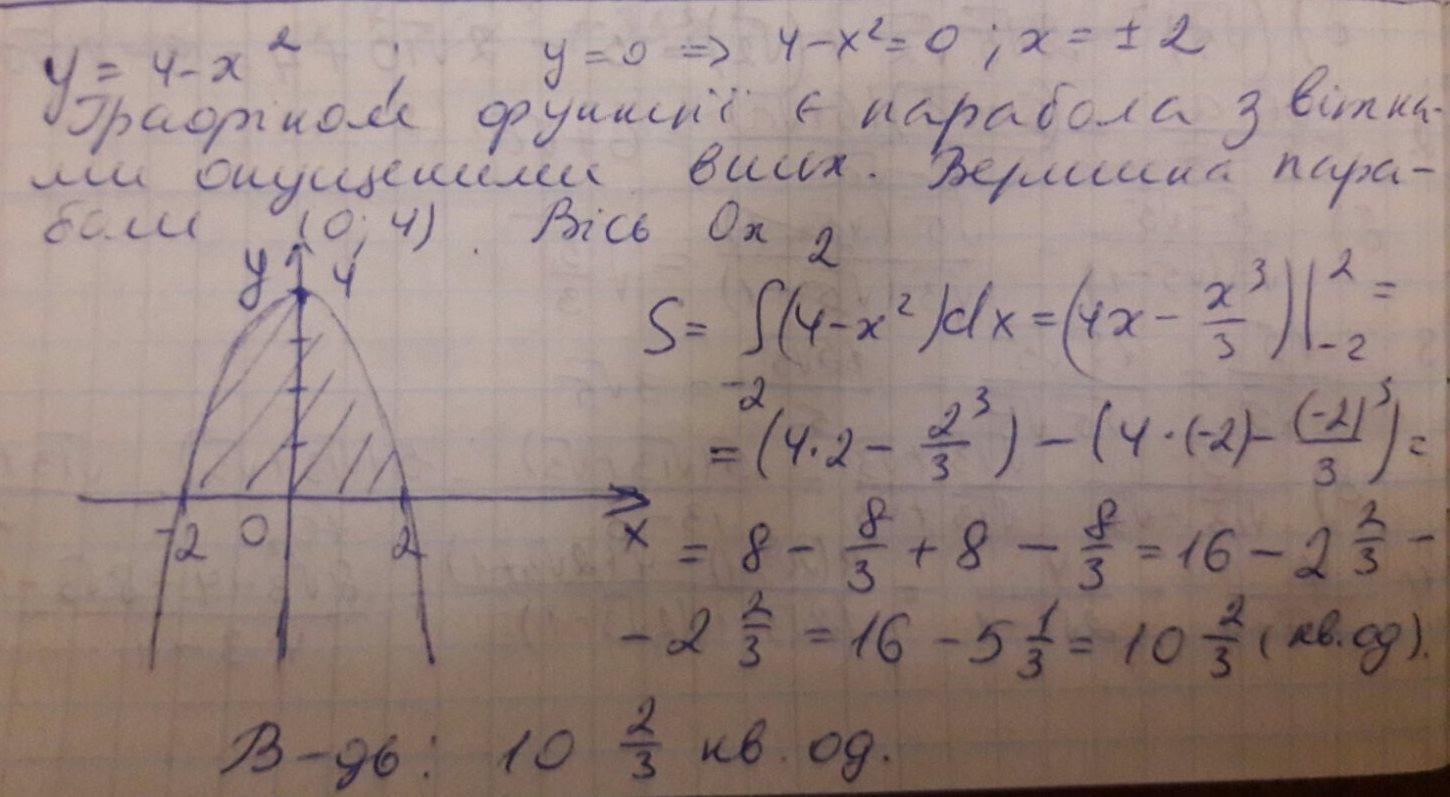 y = 4-x² ; y=0 => 4-x²=0 ; x = ±2
Графіком функції є парабола з вітка-
ми опущеними вниз. Вершина пара-
боли (0; 4). Вісь Ox
y 4
-2 0 2 x
S = ∫₋₂² (4-x²)dx = (4x - x³/3)|₋₂² =
= (4·2 - 2³/3) - (4·(-2) - (-2)³/3) =
= 8 - 8/3 + 8 - 8/3 = 16 - 2 2/3 -
- 2 2/3 = 16 - 5 1/3 = 10 2/3 (кв.од).
В-дь: 10 2/3 кв. од.